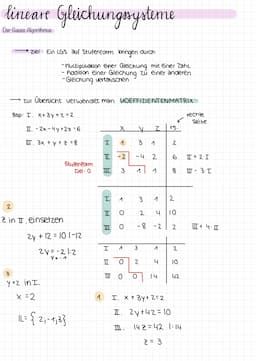 lineare Gleichungssysteme
Der Gauss Algorithmus
→ Ziel: Ein LGS auf Stufenform bringen durch
- Multiplikation einer Gleichung mit einer Zahl
- Addition einer Gleichung zu einer anderen
- Gleichung vertauschen
→ zur Übersicht verwendet man KOEFFIZIENTENMATRIX
rechte Seite
Bsp: I. x+3y+z=2
II. -2x-4y+2z=6
III. 3x+y+z=8
x y z r.S.
I 1 3 1 2
II -2 -4 2 6 II+2·I
III 3 1 1 8 III-3·I
Stufenform
Ziel: 0
I 1 3 1 2
II 0 2 4 10
III 0 -8 -2 2 III+4·II
I 1 3 1 2
II 0 2 4 10
III 0 0 14 42
1 I. x+3y+z=2
II. 2y+4z=10
III. 14z=42 |:14
z=3
2
z in II. einsetzen
2y+12=10 |-12
2y=-2 |:2
y=-1
3
y+z in I.
x=2
L={2,-1,3}